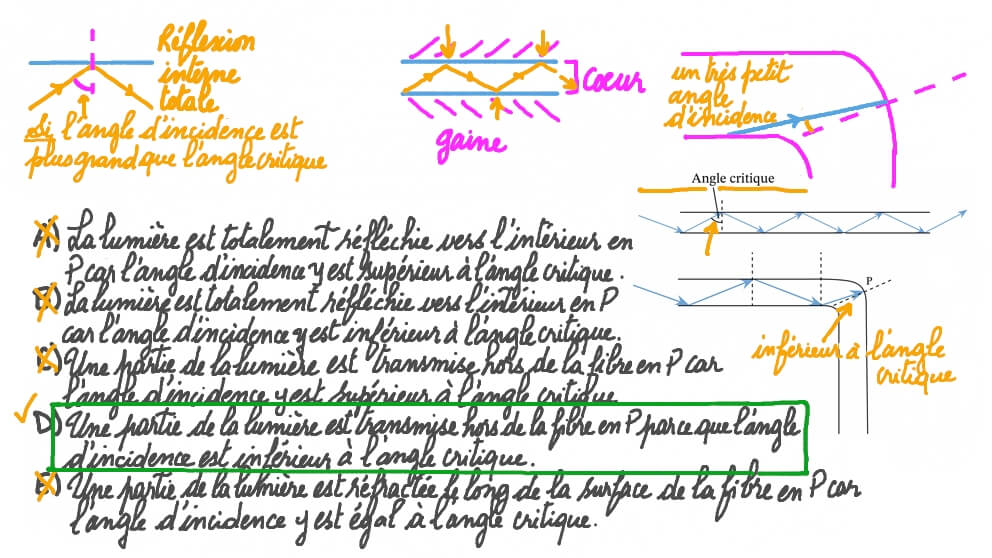 Réflexion
interne
totale
Si l'angle d'incidence est
plus grand que l'angle critique
coeur
gaine
un très petit
angle
d'incidence
Angle critique
P
inférieur à l'angle
critique
A) La lumière est totalement réfléchie vers l'intérieur en
P car l'angle d'incidence y est supérieur à l'angle critique.
B) La lumière est totalement réfléchie vers l'intérieur en P
car l'angle d'incidence y est inférieur à l'angle critique.
C) Une partie de la lumière est transmise hors de la fibre en P car
l'angle d'incidence y est supérieur à l'angle critique
D) Une partie de la lumière est transmise hors de la fibre en P parce que l'angle
d'incidence est inférieur à l'angle critique.
E) Une partie de la lumière est réfractée le long de la surface de la fibre en P car
l'angle d'incidence y est égal à l'angle critique.